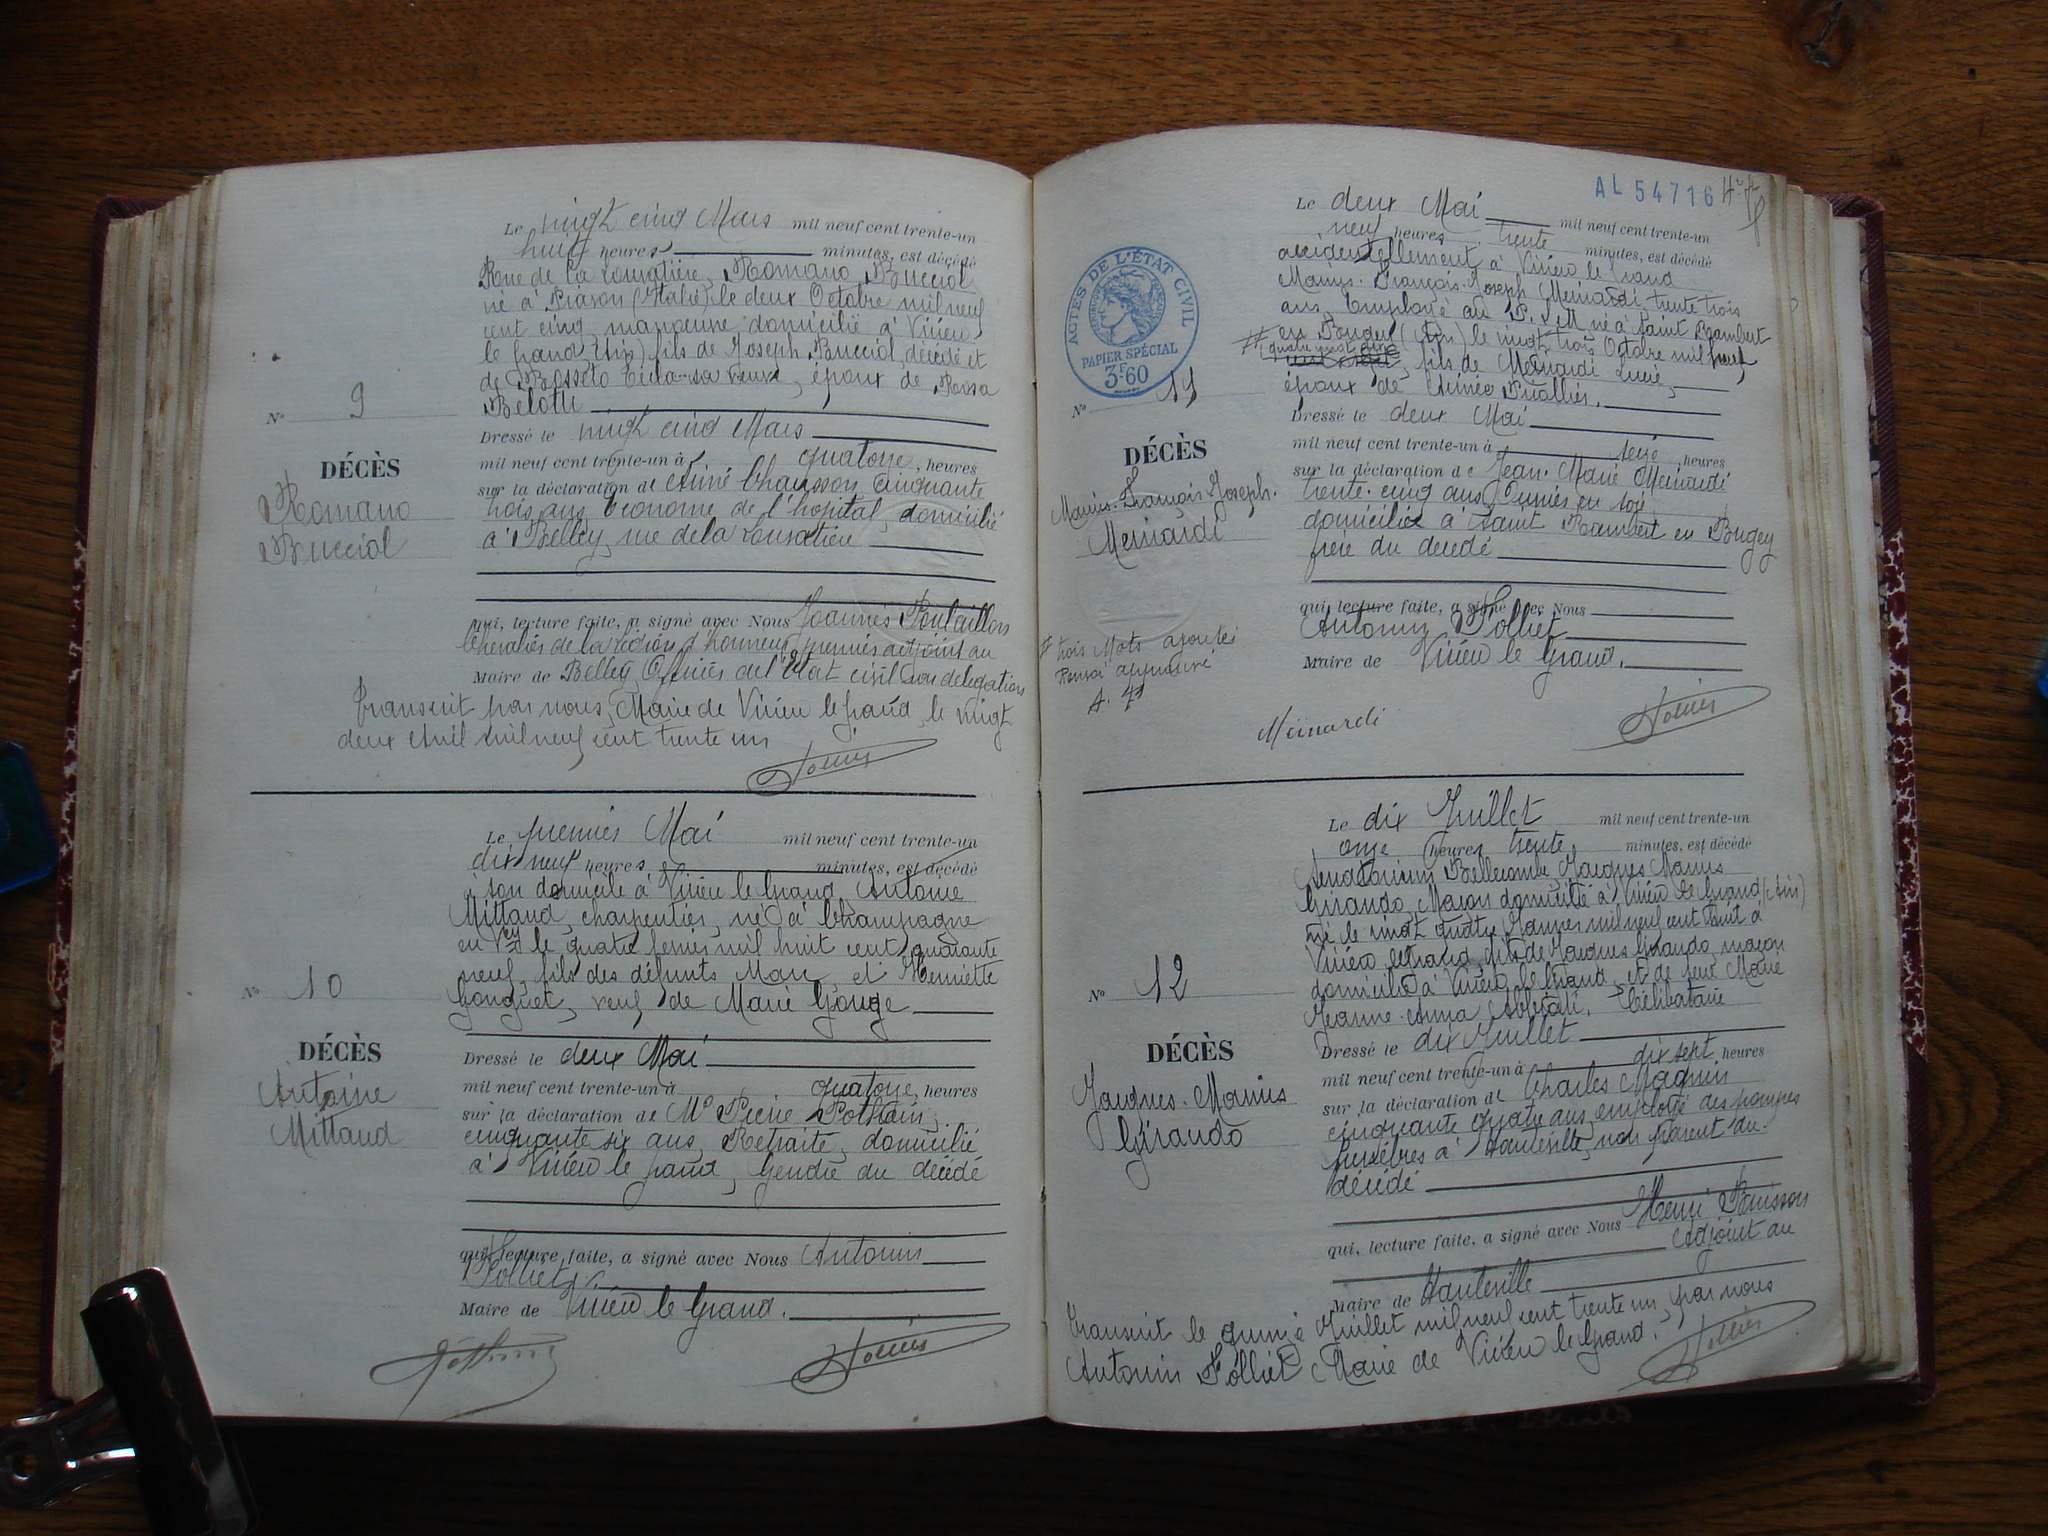 Le vingt cinq Mars mil neuf cent trente-un
huit heures minutes, est décédé
Rue de la Romano Bucciol
né à (Italie) le deux Octobre mil neuf
cent cinq, manoeuvre domicilié à Virieu
le grand (Ain) fils de Joseph Bucciol, décédé et
de Bosseto sa veuve, époux de Rosa
Belotti
Nº 9
DÉCÈS
Romano
Bucciol
Dressé le vingt cinq Mars
mil neuf cent trente-un à quatorze, heures
sur la déclaration de Aimé Chausson cinquante
trois ans, Econome de l'hôpital, domicilié
à Belley, rue de la
qui, lecture faite, a signé avec Nous Joannès Poulaillon
Chevalier de la Légion d'honneur, premier adjoint au
Maire de Belley, Officier de l'Etat civil par délégation
Transcrit par nous, Maire de Virieu le grand, le vingt
deux Avril mil neuf cent trente un
Le premier Mai mil neuf cent trente-un
dix neuf heures minutes, est décédé
à son domicile à Virieu le Grand, Antoine
Mittaud, charpentier, né à Champagne
en Vey le quatre février mil huit cent quarante
neuf, fils des défunts Marc et Henriette
Gonguet, veuf de Marie Gouge
Nº 10
DÉCÈS
Antoine
Mittaud
Dressé le deux Mai
mil neuf cent trente-un à quatorze, heures
sur la déclaration de Mr Pierre Pothain,
cinquante six ans, Retraité, domicilié
à Virieu le grand, Gendre du décédé
qui, lecture faite, a signé avec Nous Antonin
Folliet
Maire de Virieu le Grand.
AL 54716
Le deux Mai mil neuf cent trente-un
neuf heures trente minutes, est décédé
accidentellement à Virieu le Grand
Marius-François-Joseph Meinardi trente trois
ans, Employé au P.L.M né à Saint Rambert
en Bugey (Ain) le vingt trois Octobre mil
# quatre vingt dix fils de Meinardi Lucie,
époux de Aimée
ACTES DE L'ÉTAT CIVIL
PAPIER SPÉCIAL
3F60
Nº 11
DÉCÈS
Marius-François Joseph.
Meinardi
Dressé le deux Mai
mil neuf cent trente-un à seize, heures
sur la déclaration de Jean-Marie Meinardi
trente-cinq ans, Ouvrier en soie
domicilié à Saint Rambert en Bugey
frère du décédé
qui, lecture faite, a signé avec Nous
Antonin Folliet
Maire de Virieu le Grand.
# trois Mots ajoutés
Renvoi approuvé
A. F
Meinardi
Le dix Juillet mil neuf cent trente-un
onze heures trente minutes, est décédé
Sanatorium Bellecombe Jacques Marius
Girando, Maçon domicilié à Virieu le Grand (Ain)
né le vingt quatre Janvier mil neuf cent huit à
Virieu le Grand, fils de Jacques Girando, maçon
domicilié à Virieu le Grand, et de feue Marie
Jeanne-Anna Célibataire
Nº 12
DÉCÈS
Jacques-Marius
Girando
Dressé le dix Juillet
mil neuf cent trente-un à dix sept, heures
sur la déclaration de Charles Magnin
cinquante quatre ans, employé des pompes
funèbres à Hauteville, non parent du
décédé
qui, lecture faite, a signé avec Nous Henri Buisson
Adjoint au
Maire de Hauteville
Transcrit le quinze Juillet mil neuf cent trente un, par nous
Antonin Folliet Maire de Virieu le Grand.